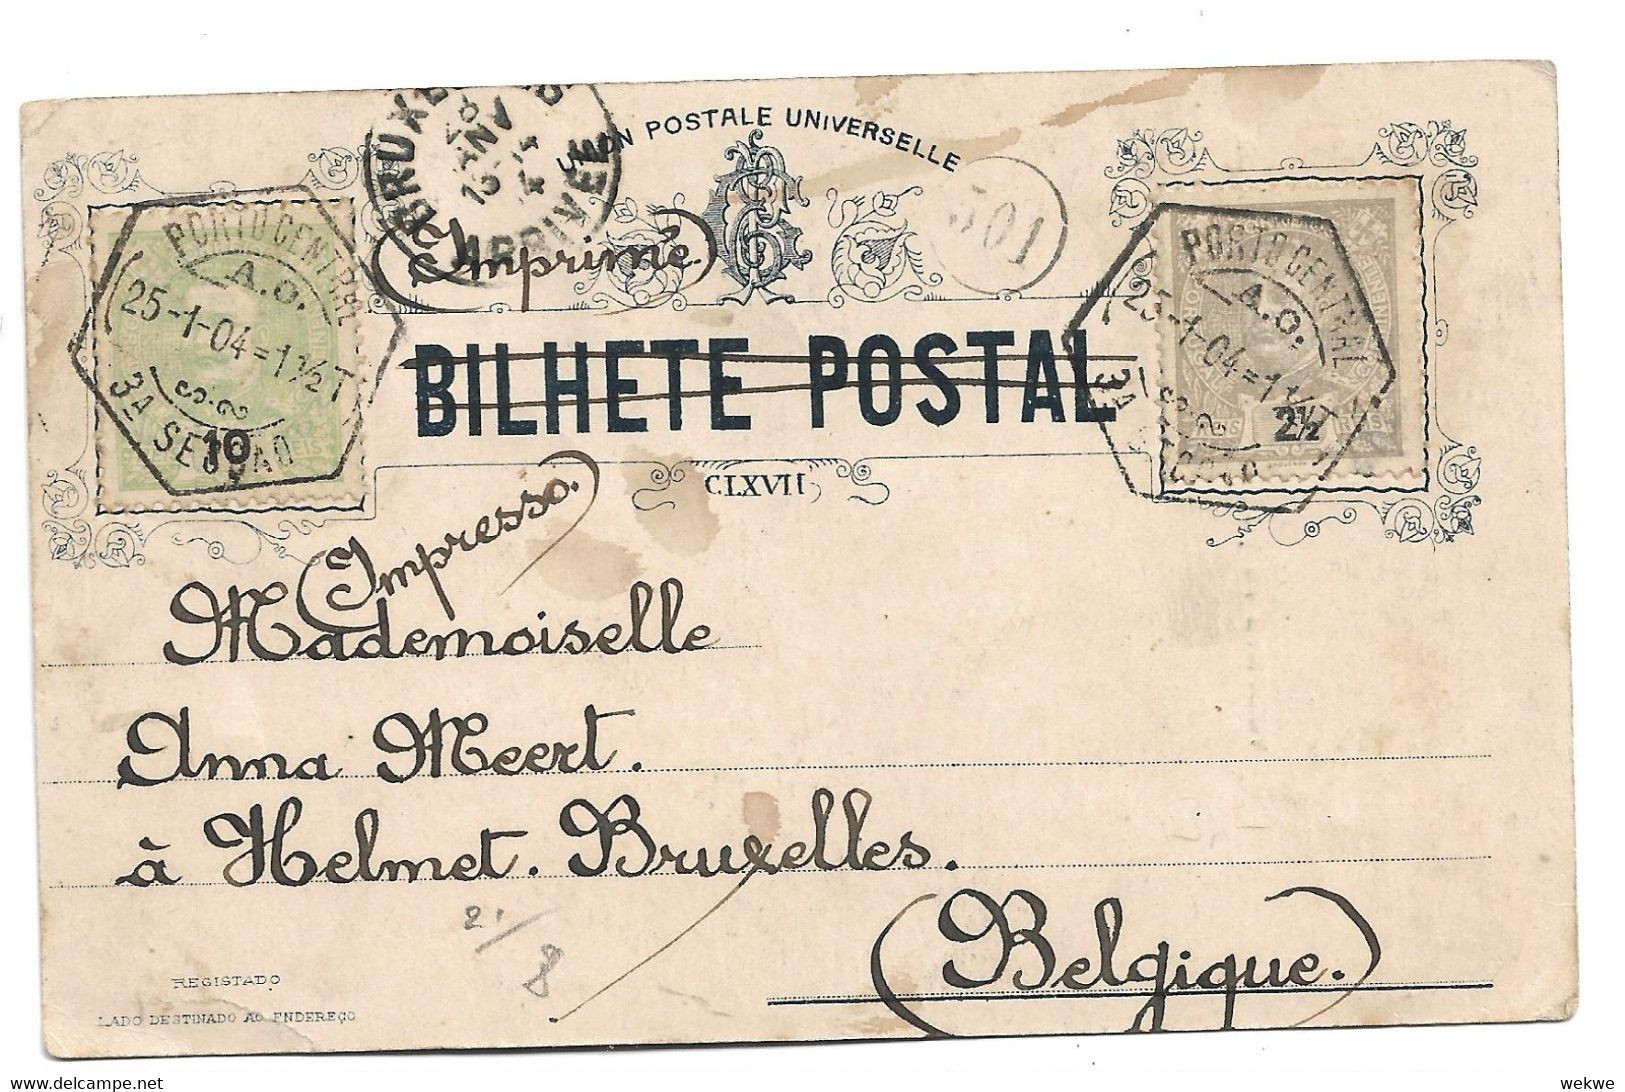 UNION POSTALE UNIVERSELLE
ARRIVÉE
501
(Imprimé)
PORTO CENTRAL
A.O.
25-1-04=1½T
3A SECÇÃO
10
PORTO CENTRAL
A.O.
25-1-04=1½T
3A SECÇÃO
2½
BILHETE POSTAL
CLXVII
(Impresso.)
Mademoiselle
Anna Meert.
à Helmet. Bruxelles.
(Belgique.)
8
REGISTADO
LADO DESTINADO AO ENDEREÇO
delcampe.net
wekwe